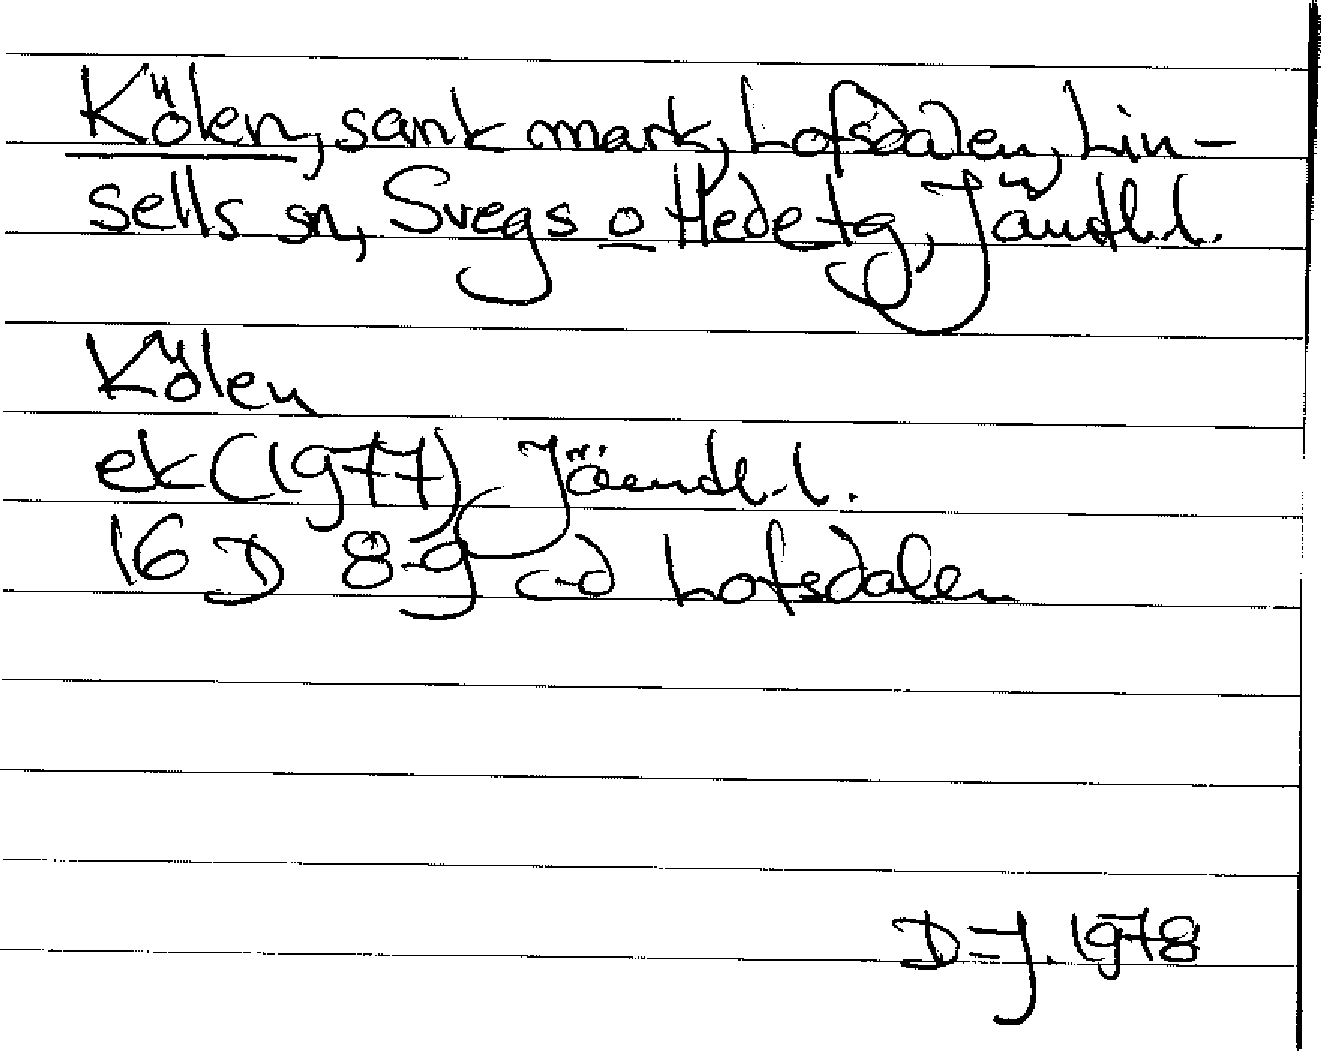 Kölen, sank mark, Lofsdalen, Lin-
sells sn, Svegs o Hede tg, Jämtl.l.
Kölen
ek (1977) Jämtl.l.
16 D 8-9 c-d Lofsdalen
D-J. 1978